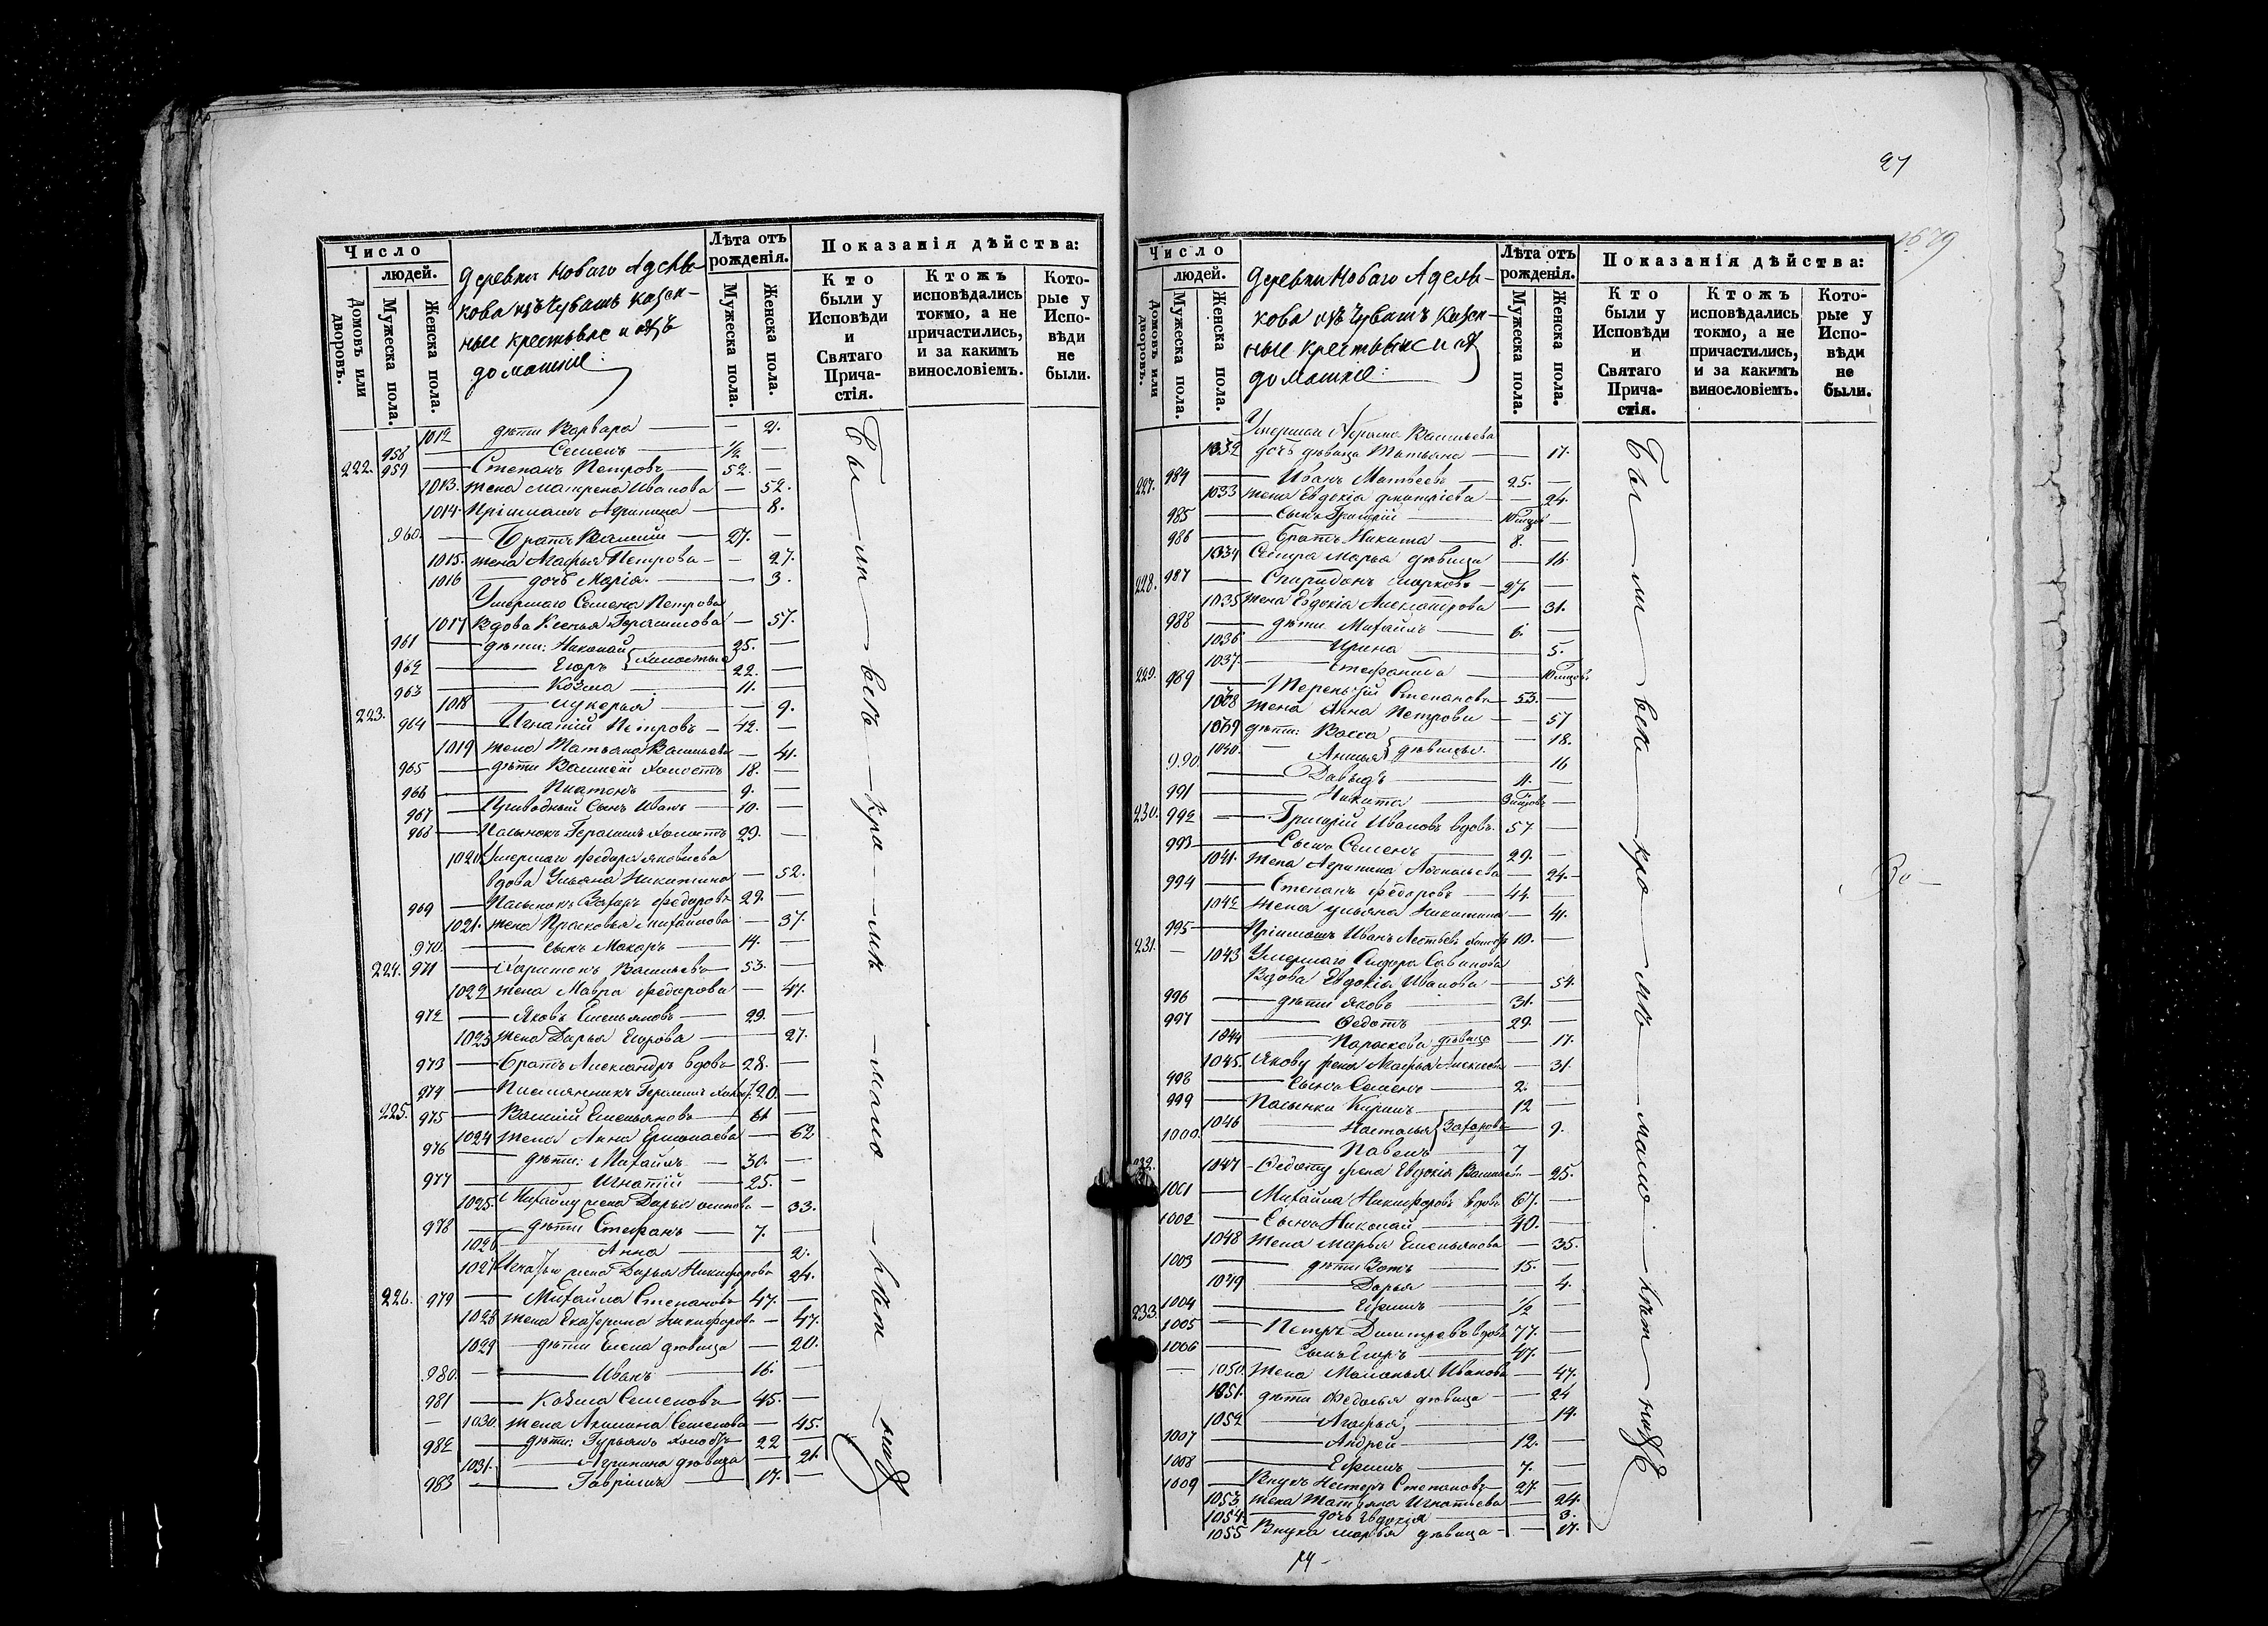 Число
людей.
Домовъ или дворовъ.
Мужеска пола.
Женска пола.
Деревни Новаго Адель-
кова изъ Чувашъ казен-
ные крестьяне и ихъ
домашніе:
Лѣта отъ рожденія.
Мужеска пола.
Женска пола.
Показанія дѣйства:
Кто были у Исповѣди и Святаго Прича-стія.
Ктожъ исповѣдались токмо, а не причастились, и за какимъ винословіемъ.
Кото-рые у Испо-вѣди не были.
1012 дѣти Варвара — 2.
958 Семенъ 1/2 —
222. 959 Степанъ Петровъ 52. —
1013. жена Матрена Иванова — 52.
1014 Пріимышъ Агрипина — 8.
960. Братъ Василій 27. —
1015. жена Агафья Петрова — 27.
1016 дочь Марія — 3.
Умершаго Семена Петрова
1017 вдова Ксенья Герасимова — 57.
961 дѣти: Николай 25. —
962 Егоръ } холостые 22. —
963 Козма 11. —
1018 Лукерья — 9.
223. 964 Игнатій Петровъ 42. —
1019 жена Татьяна Васильева — 41.
965 дѣти Василій холостъ 18. —
966 Платонъ 9. —
967 Приводный Сынъ Иванъ 10. —
968 Пасынокъ Герасимъ холостъ 29. —
1020. Умершаго Федора Яковлева
вдова Ульяна Никитина — 52.
969 Пасынокъ Захаръ Федоровъ 29. —
1021. жена Прасковья Михайлова — 37.
970. сынъ Макаръ 14. —
224. 971 Харитонъ Васильевъ 53. —
1022 жена Мавра Федорова — 47.
972 Яковъ Емельяновъ 29. —
1023 жена Дарья Егорова — 27.
973 Братъ Александръ вдовъ 28. —
974 Племянникъ Герасимъ холост. 20. —
225. 975 Василій Емельяновъ 61 —
1024 жена Анна Ермолаева — 62
976 дѣти: Михаилъ 30. —
977 Игнатій 25. —
1025. Михайлу жена Дарья Осипова — 33.
978 дѣти Степанъ 7. —
1026 Анна — 2.
1027 Игнатью жена Дарья Никифорова 24.
226. 979 Михайла Степановъ 47. —
1028 жена Екатерина Никифорова — 47.
1029 дѣти Елена дѣвица — 20.
980. Иванъ 16. —
981 Козма Семеновъ 45. —
1030. жена Акилина Семенова — 45.
982 дѣти: Гурьянъ холостъ 22 —
1031. Агрипина дѣвица — 21.
983 Гавріилъ 17. —
27
1679
Число
людей.
Домовъ или дворовъ.
Мужеска пола.
Женска пола.
Деревни Новаго Адель-
кова изъ Чувашъ казен-
ные крестьяне и их
домашніе:
Лѣта отъ рожденія.
Мужеска пола.
Женска пола.
Показанія дѣйства:
Кто были у Исповѣди и Святаго Прича-стія.
Ктожъ исповѣдались токмо, а не причастились, и за какимъ винословіемъ.
Кото-рые у Испо-вѣди не были.
Умершаго Абрама Васильева
1032 дочь дѣвица Татьяна — 17.
227. 984 Иванъ Матвеевъ 25. —
1033 жена Евдокія Дмитріева — 24.
985 сынъ Григорій —
986 братъ Никита 8. —
1034 Сестра Марья дѣвица — 16.
228. 987 Спиридонъ Марковъ 27. —
1035 жена Евдокія Александрова — 31.
988 дѣти Михаилъ 6. —
1036 Ирина — 5.
1037. Степанида —
229. 989 Терентій Степановъ 53. —
1038 жена Анна Петрова — 57
1039 дѣти: Васса — 18.
1040. Анисья } дѣвицы — 16
990. Давыдъ 11. —
991 Никита —
230. 992 Григорій Ивановъ вдовъ 57 —
993 Сынъ Семенъ 29. —
1041. жена Агрипина — 24.
994 Степанъ Федоровъ 44. —
1042 жена Ульяна Никитина — 41.
995 Пріимышъ Иванъ 10. —
231. 1043 Умершаго Сидора Савинова
Вдова Евдокія Иванова — 54.
996 дѣти Яковъ 31. —
997 Федотъ 29. —
1044 Параскева дѣвица — 17.
1045. Якову жена Марья Алексеева — 31.
998 Сынъ Семенъ 2. —
999 Пасынки Кирилъ 12 —
1046 Наталья } Захаровы — 9.
1000. Павелъ 7
1047 Федоту жена Евдокія Васильева — 25.
232. 1001 Михайла Никифоровъ вдовъ 67. —
1002 Сынъ Николай 40. —
1048 жена Марья Емельянова — 35.
1003 дѣти Зотъ 15. —
1049 Дарья — 4.
1004 Ефимъ 1/2 —
233. 1005 Петръ Дмитревъ вдовъ 77. —
1006 Сынъ Егоръ 47. —
1050. жена Маланья Иванова — 47.
1051. дѣти Федосья дѣвица — 24
1052 Агафья — 14.
1007 Андрей 12. —
1008 Ефимъ 7. —
1009 Внукъ Нестеръ Степановъ 27. —
1053 жена Татьяна Игнатьева — 24.
1054 дочь Евдокія 3.
1055 Внука Марья дѣвица — 17.